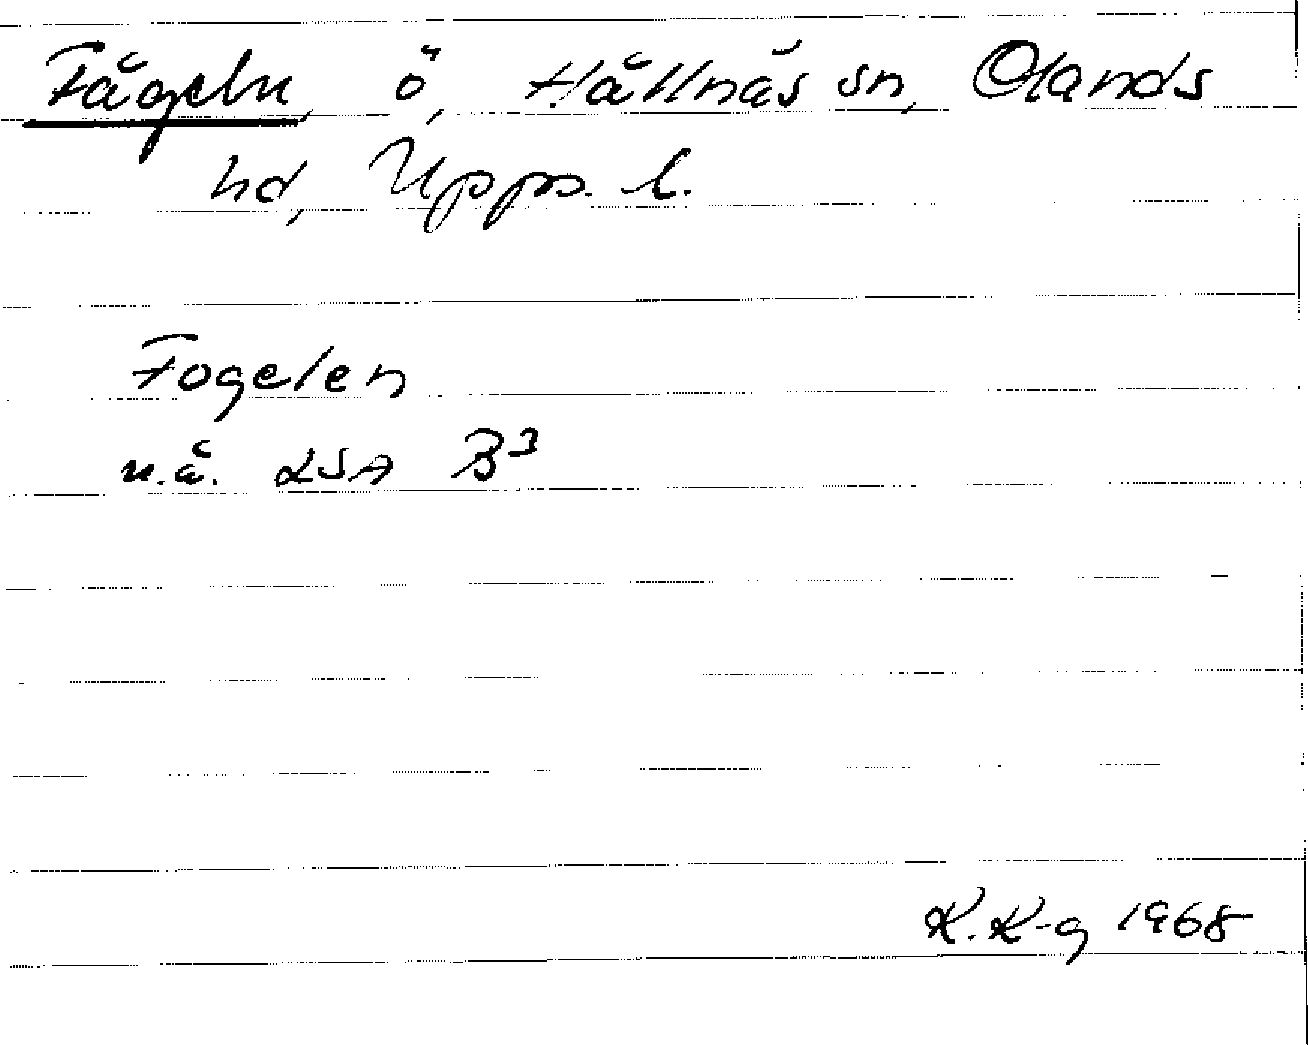 Fågeln, ö, Hållnäs sn, Olands
hd, Upps. l.
Fogelen
u.å. LSA B3
K. K-g 1968